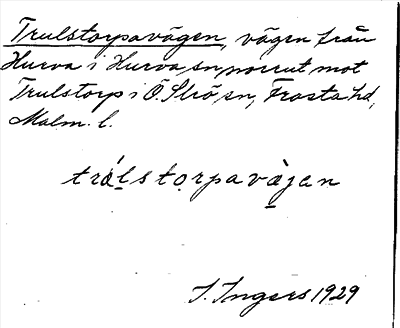 Trulstorpavägen, vägen från
Hurva i Hurva sn norrut mot
Trulstorp i Ö. Strö sn, Frosta hd,
Malm. l.
trǿlstorpavàjan
I. Ingers 1929